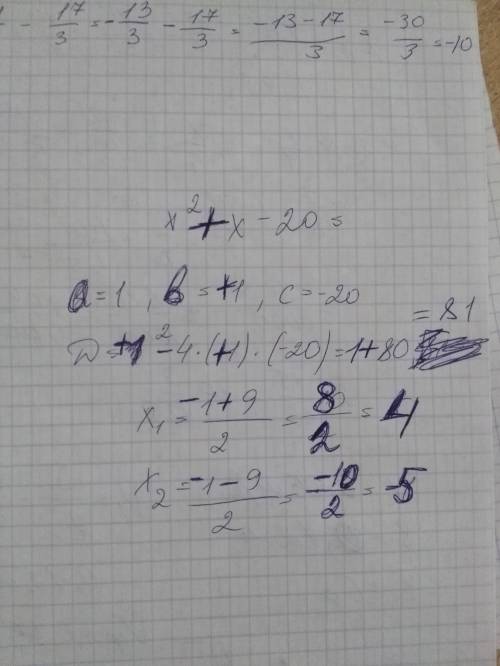 - 17/3 = -13/3 - 17/3 = (-13-17)/3 = -30/3 = -10
x² + x - 20 =
a = 1 , b = +1 , c = -20
D = +1² - 4 · (+1) · (-20) = 1 + 80 = 81
x₁ = (-1+9)/2 = 8/2 = 4
x₂ = (-1-9)/2 = -10/2 = -5